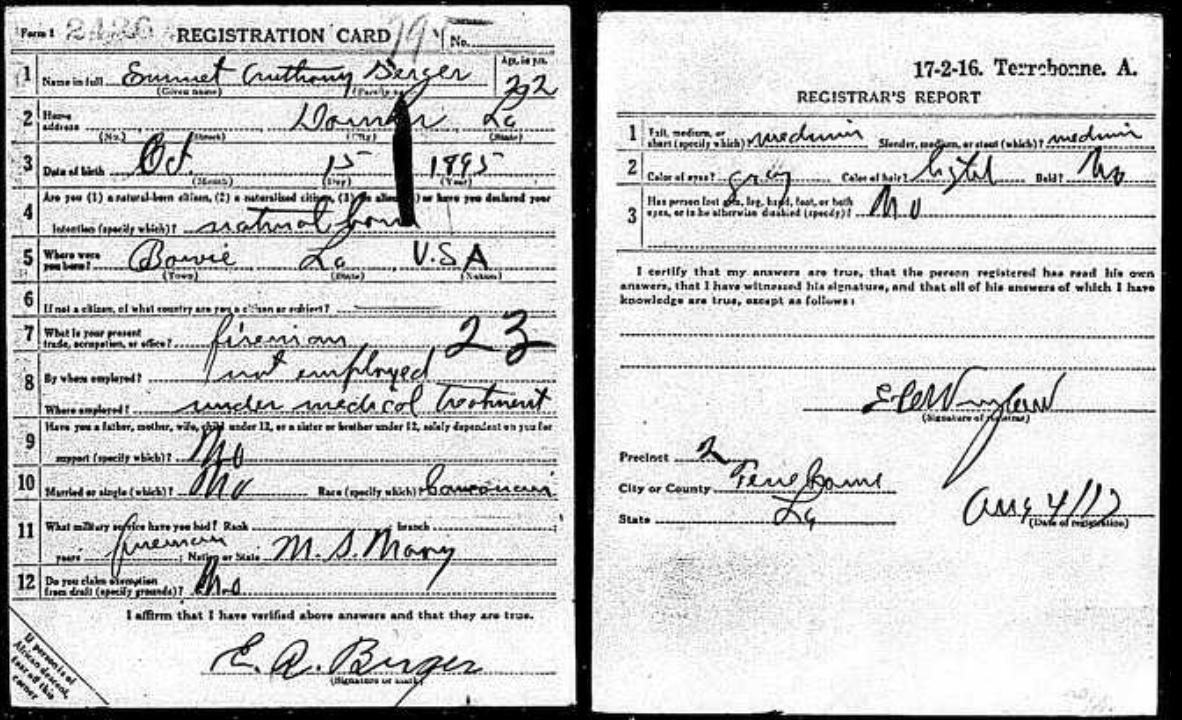 Form 1 REGISTRATION CARD No.
1 Name in full Emmet Anthony Berger Age, in yrs.
(Given name) (Family name) 22
2 Home address La
(No.) (Street) (City) (State)
3 Date of birth Oct. 15 1895
(Month) (Day) (Year)
4 Are you (1) a natural-born citizen, (2) a naturalized citizen, (3) an alien, or have you declared your
intention (specify which)? natural born
5 Where were you born? Bowie La U.S A
(Town) (State) (Nation)
6 If not a citizen, of what country are you a citizen or subject?
7 What is your present trade, occupation, or office? fireman 23
8 By whom employed? not employed
Where employed? under medical treatment
9 Have you a father, mother, wife, child under 12, or a sister or brother under 12, solely dependent on you for
support (specify which)? No
10 Married or single (which)? No Race (specify which)?
11 What military service have you had? Rank branch
years fireman ; Nation or State
12 Do you claim exemption from draft (specify grounds)? No
I affirm that I have verified above answers and that they are true.
E. A. Berger
(Signature or mark)
If person is of
African descent,
tear off this
corner
17-2-16. Terrebonne. A.
REGISTRAR'S REPORT
1 Tall, medium, or short (specify which)? medium Slender, medium, or stout (which)? medium
2 Color of eyes? gray Color of hair? Bald? No
3 Has person lost arm, leg, hand, foot, or both
eyes, or is he otherwise disabled (specify)? No
I certify that my answers are true, that the person registered has read his own
answers, that I have witnessed his signature, and that all of his answers of which I have
knowledge are true, except as follows:
(Signature of registrar)
Precinct 2
City or County Terrebonne
State La Aug 4/17
(Date of registration)